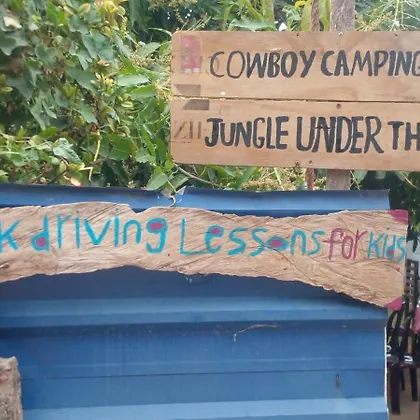 COWBOY CAMPING
JUNGLE UNDER TH
K driving Lessons for Kids